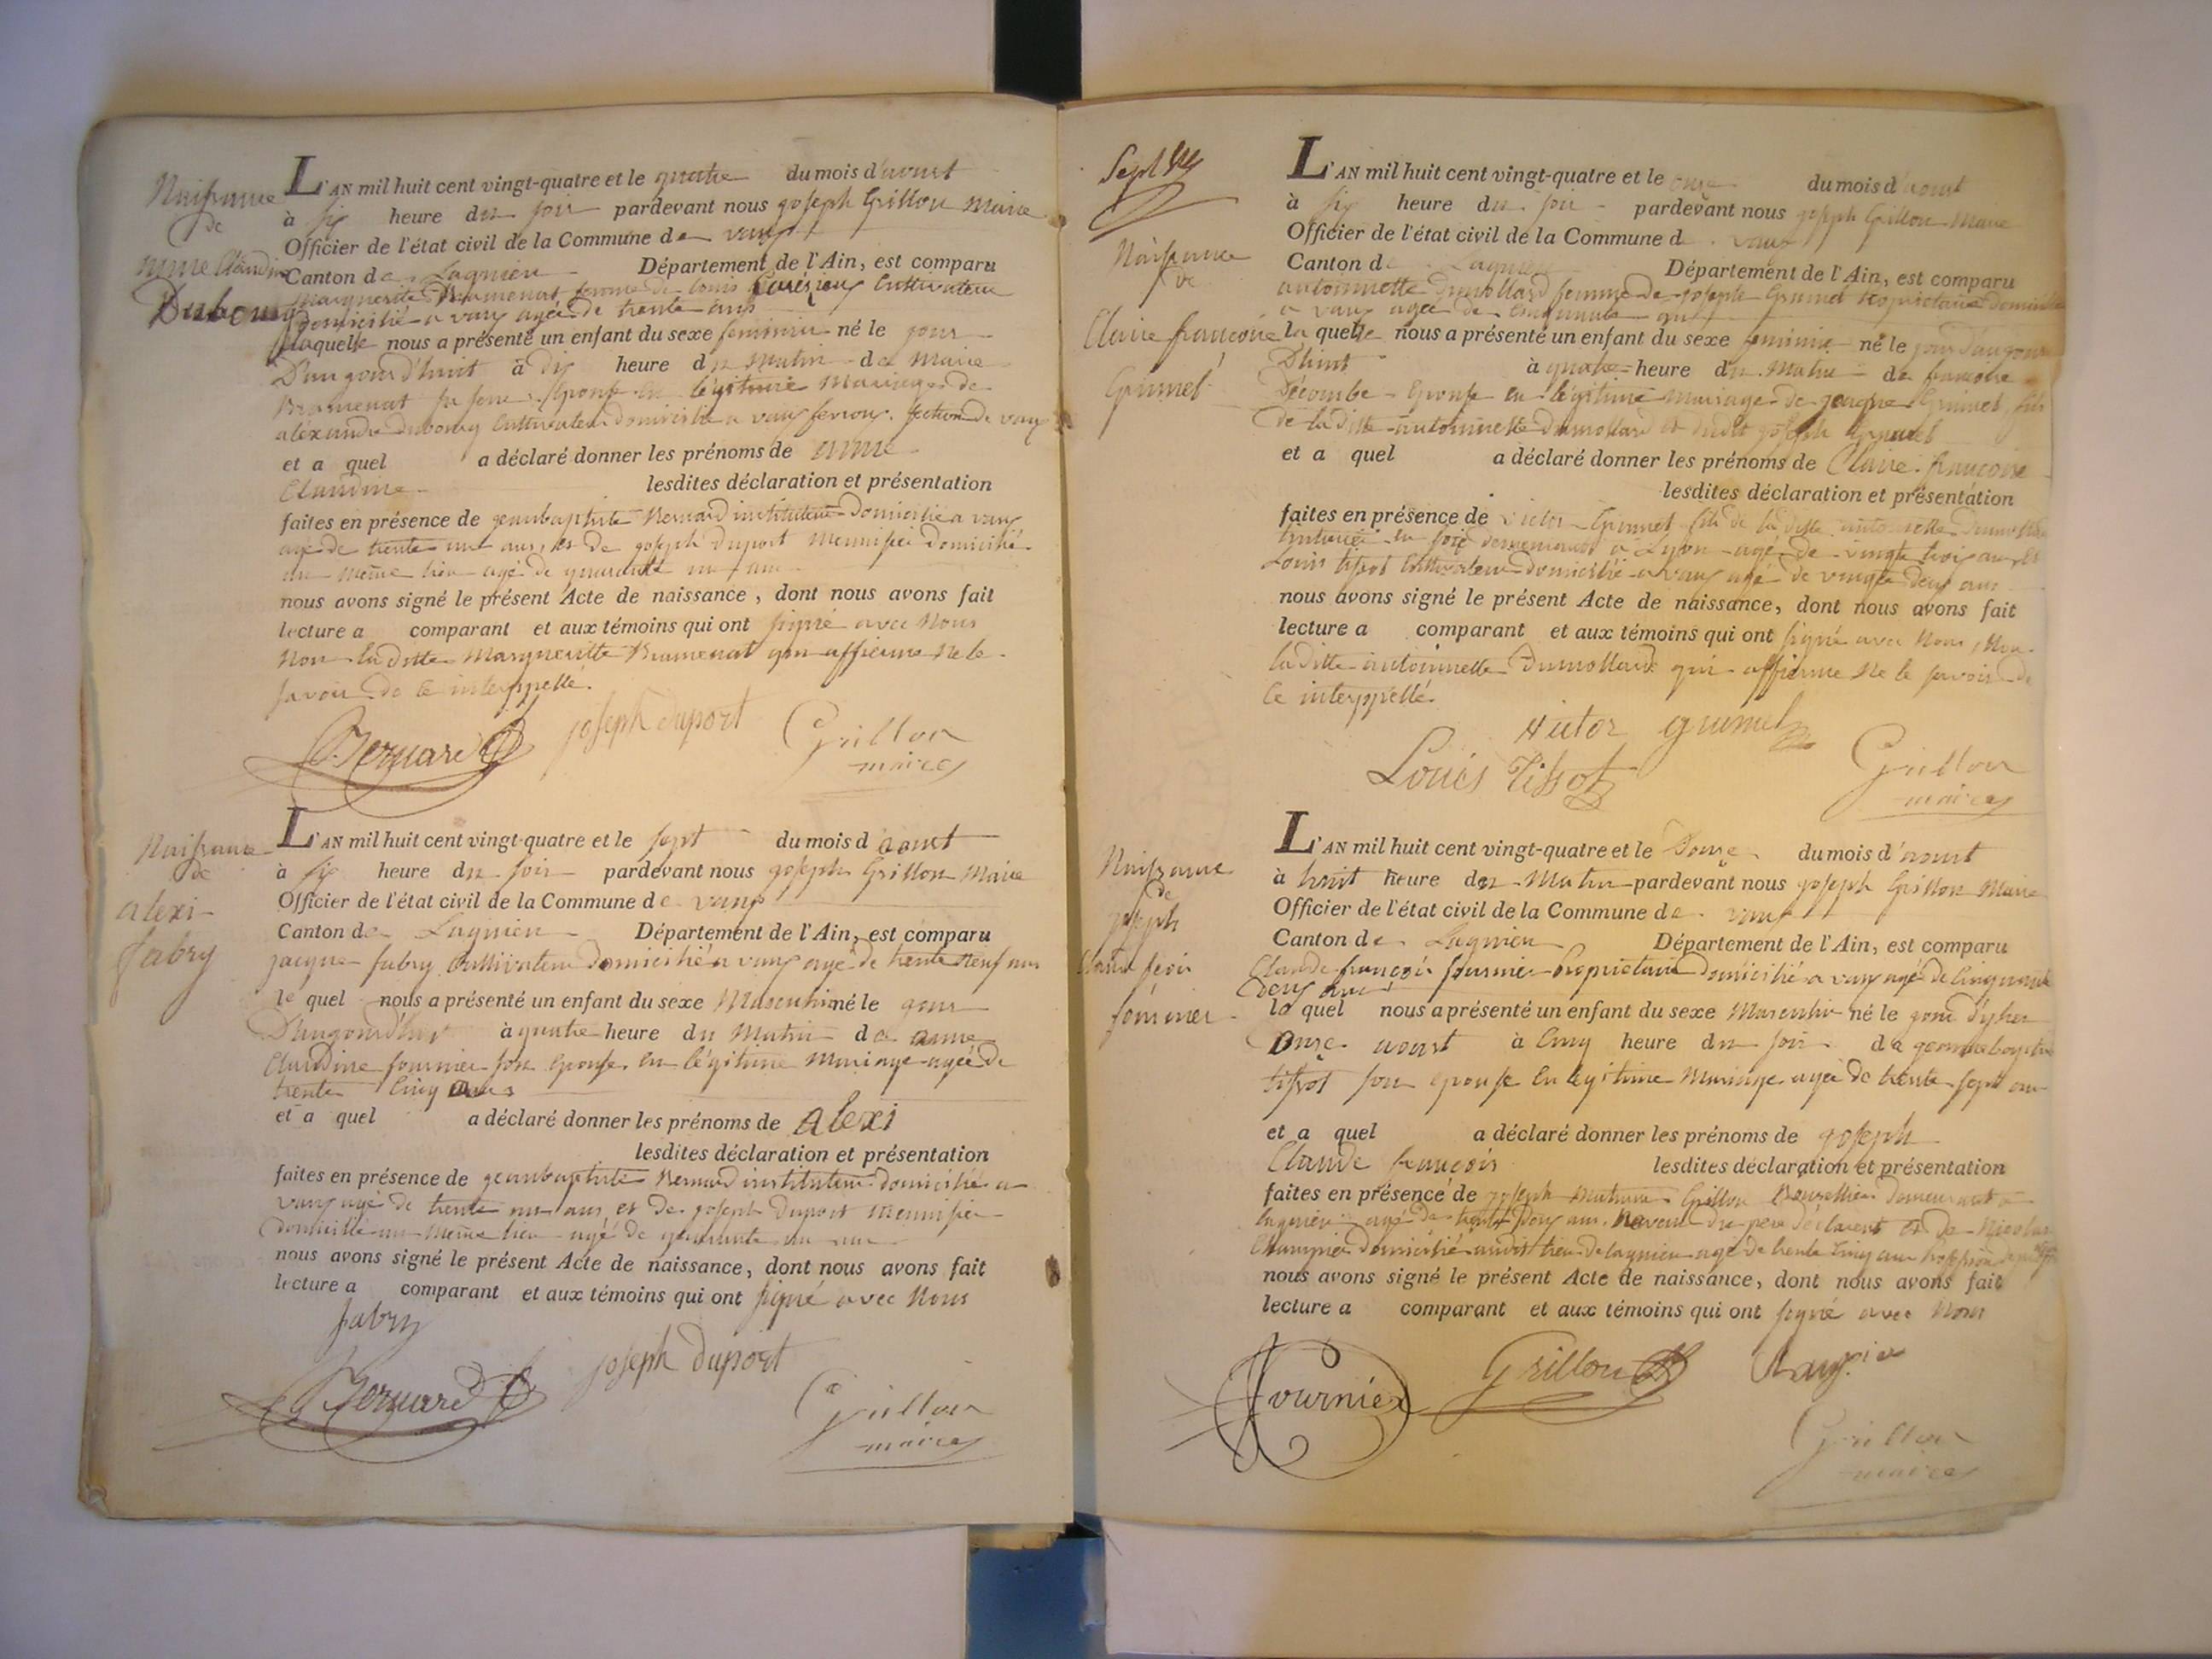 Naissance
de
anne Claudine
Dubourg
L'AN mil huit cent vingt-quatre et le quatre du mois d'aoust
à six heure du soir pardevant nous joseph Grillon Maire
Officier de l'état civil de la Commune de vaux
Canton de Lagnieu Département de l'Ain, est comparu
Marguerite Bramerat femme de Louis Cultivateur
domicilié a vaux agée de trente ans
laquelle nous a présenté un enfant du sexe feminin né le jour
D'aujourd'huit à dix heure du Matin de Marie
Bramerat sa soeur Epouse en légitime Mariage de
aléxandre dubourg Cultivateur domicilié a vaux fevroux section de vaux
et a quel a déclaré donner les prénoms de anne
Claudine lesdites déclaration et présentation
faites en présence de jeanbaptiste Bernard instituteur domicilié a vaux
agé de trente un ans, et de joseph duport Menuisier domicilié
au même lieu agé de quarante un ans
nous avons signé le présent Acte de naissance, dont nous avons fait
lecture a comparant et aux témoins qui ont signé avec Nous
Non la ditte Margueritte Bramerat qui affirme Ne le
savoir de ce interppellé.
Bernard joseph duport Grillon
maire
Naissance
de
alexi
fabry
L'AN mil huit cent vingt-quatre et le sept du mois d'aoust
à six heure du soir pardevant nous joseph Grillon Maire
Officier de l'état civil de la Commune de vaux
Canton de Lagnieu Département de l'Ain, est comparu
jacque fabry Cultivateur domicilié a vaux agé de trente Neuf ans
le quel nous a présenté un enfant du sexe Masculin né le jour
D'aujourd'huit à quatre heure du Matin de anne
Claudine fournier son Epouse en légitime Mariage agée de
trente Cinq ans
et a quel a déclaré donner les prénoms de alexi
lesdites déclaration et présentation
faites en présence de jeanbaptiste Bernard instituteur domicilié a
vaux agé de trente un ans et de joseph duport Menuisier
domicilié au même lieu agé de quarante un ans
nous avons signé le présent Acte de naissance, dont nous avons fait
lecture a comparant et aux témoins qui ont signé avec Nous
fabry
Bernard joseph duport
Grillon
maire
Naissance
de
Claire francoise
Grumel
L'AN mil huit cent vingt-quatre et le onze du mois d'aoust
à six heure du soir pardevant nous joseph Grillon Maire
Officier de l'état civil de la Commune de vaux
Canton de Lagnieu Département de l'Ain, est comparu
antoinnette Dumollard femme de joseph Grumel propriétaire domicilié
a vaux agée de cinquante ans
la quelle nous a présenté un enfant du sexe feminin né le jour d'aujourd
D'huit à quatre heure du Matin de francoise
Décombe Epouse en légitime Mariage de Grumel fils
de la ditte antoinnette Dumollard et dudit joseph Grumel
et a quel a déclaré donner les prénoms de Claire francoise
lesdites déclaration et présentation
faites en présence de victor Grumel fils de la ditte antoinnette Dumollard
en soie demeurant a Lyon agé de vingt trois ans et
Louis tissot Cultivateur domicilié a vaux agé de vingte deux ans
nous avons signé le présent Acte de naissance, dont nous avons fait
lecture a comparant et aux témoins qui ont signé avec Nous, Non
la ditte antoinnette Dumollard qui affirme Ne le savoir de
Ce interppellé.
victor grumel
Louis Tissot Grillon
maire
Naissance
de
joseph
fournier
L'AN mil huit cent vingt-quatre et le Douze du mois d'aoust
à huit heure du Matin pardevant nous joseph Grillon Maire
Officier de l'état civil de la Commune de vaux
Canton de Lagnieu Département de l'Ain, est comparu
Claude françois fournier Propriétaire domicilié a vaux agé de Cinquante
Deux ans
le quel nous a présenté un enfant du sexe Masculin né le jour d'yher
Onze aoust à Cinq heure du soir de
tissot son epouse En legitime Mariage agée de trente sept ans
et a quel a déclaré donner les prénoms de joseph
Claude françois lesdites déclaration et présentation
faites en présence de joseph Grillon demeurant a
Lagnieu agé de trente Deux ans, Neveu du père déclarent et de Nicolas
domicilié audit lieu de lagnieu agé de trente Cinq ans
nous avons signé le présent Acte de naissance, dont nous avons fait
lecture a comparant et aux témoins qui ont signé avec Nous
Fournier Grillon
Grillon
maire